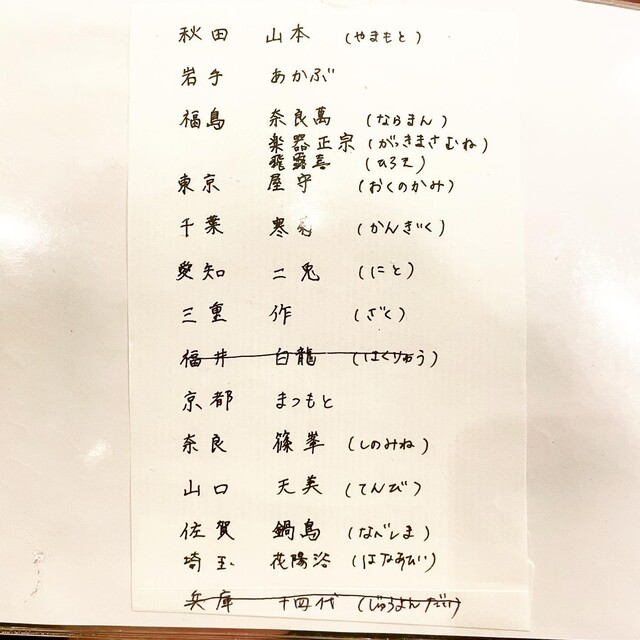 秋田 山本 (やまもと)
岩手 あかぶ
福島 奈良萬 (ならまん)
楽器正宗 (がっきまさむね)
飛露喜 (ひろき)
東京 屋守 (おくのかみ)
千葉 寒菊 (かんぎく)
愛知 二兎 (にと)
三重 作 (ざく)
福井 白龍 (はくりゅう)
京都 まつもと
奈良 篠峯 (しのみね)
山口 天美 (てんび)
佐賀 鍋島 (なべしま)
埼玉 花陽浴 (はなあび)
兵庫 十四代 (じゅうよんだい)